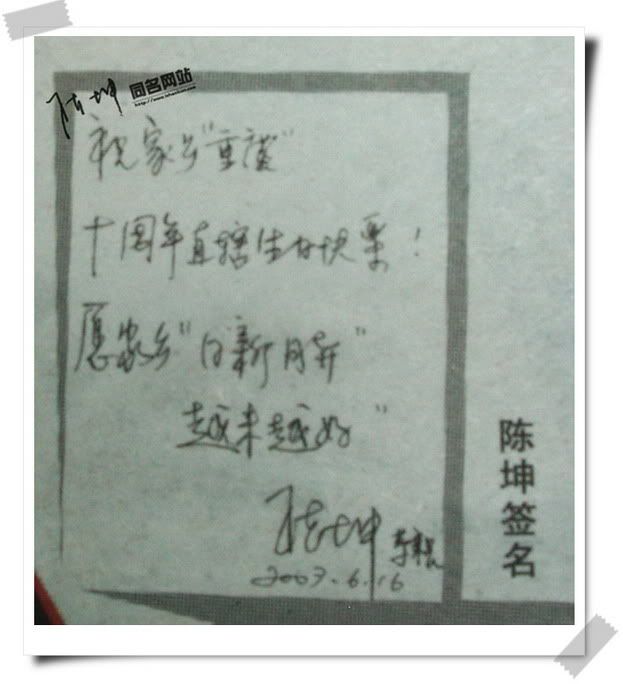 陈坤 同名网站
祝家乡"重庆"
十周年直辖生日快乐！
愿家乡"日新月异"
越来越好"
陈坤
2007.6.16
陈坤签名